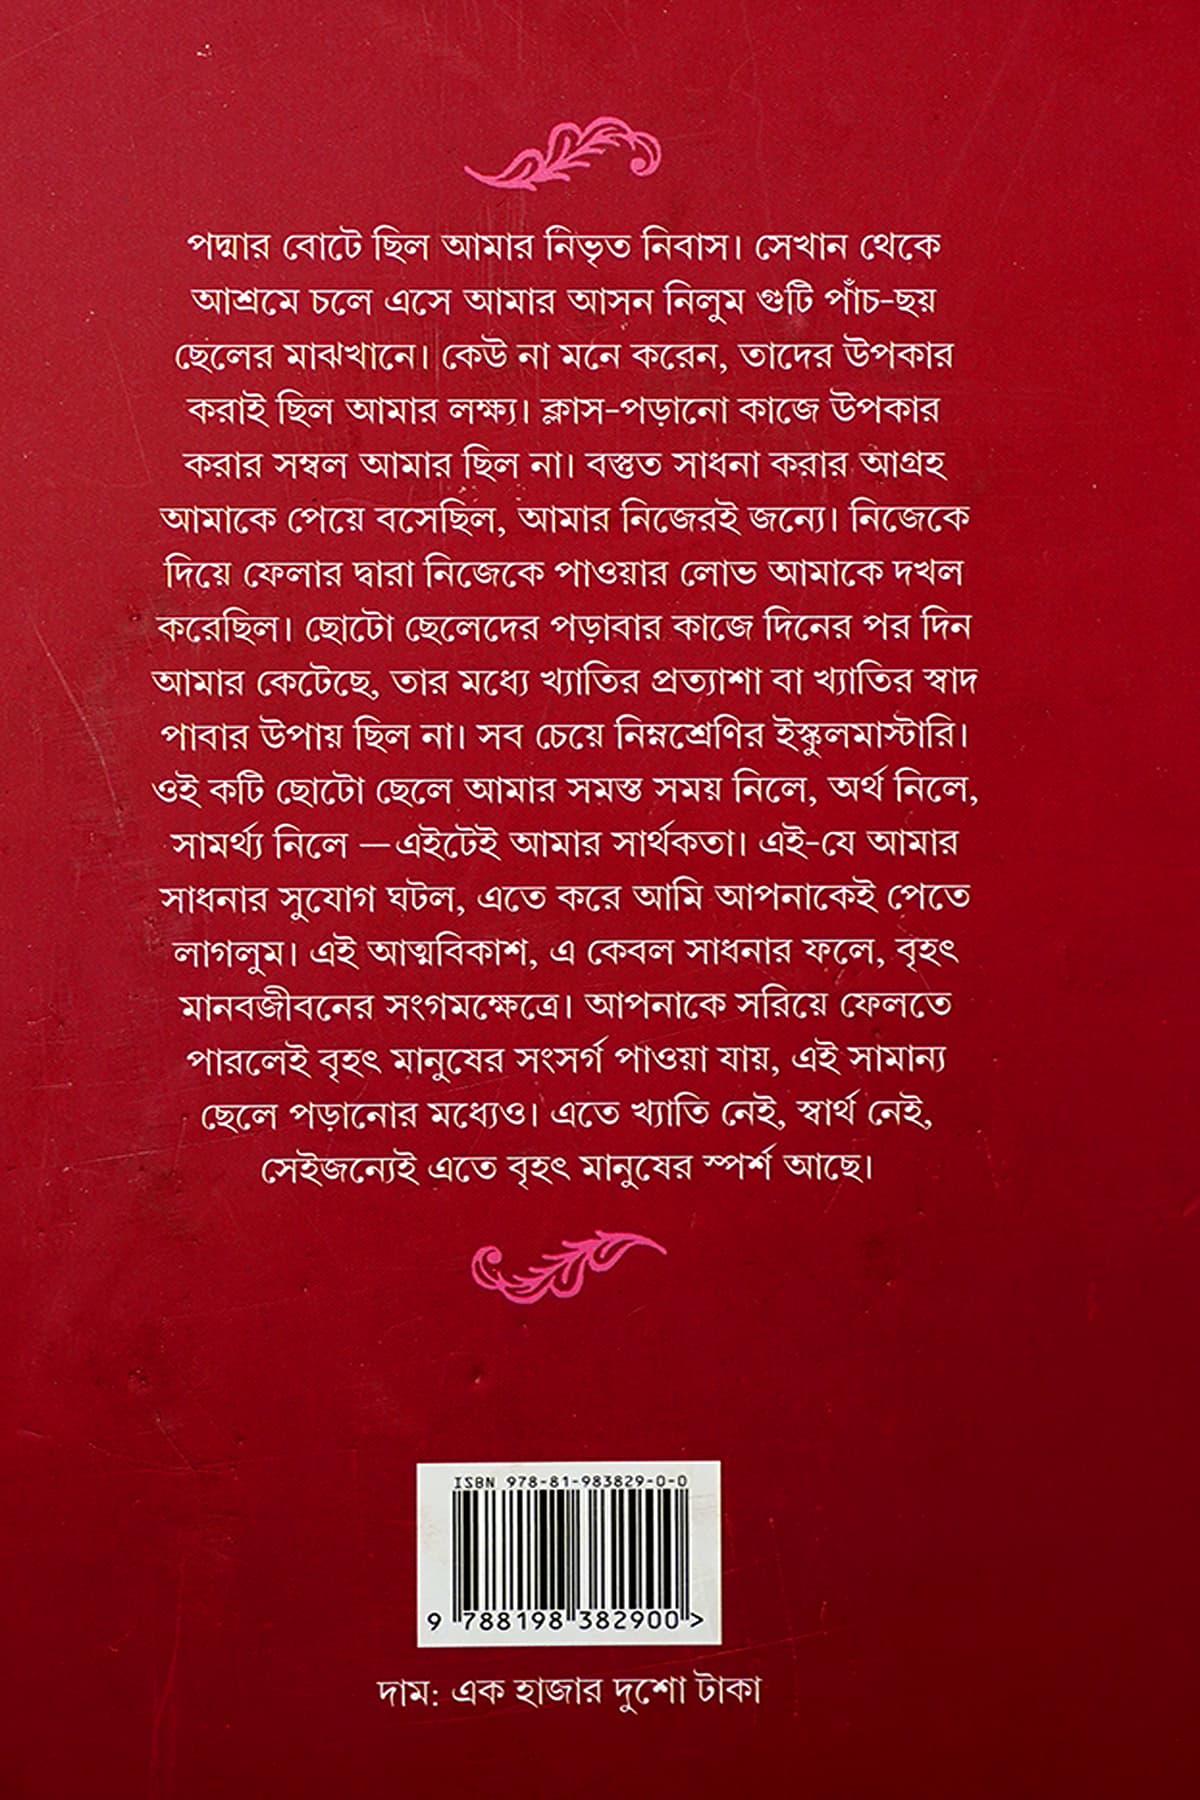 পদ্মার বোটে ছিল আমার নিভৃত নিবাস। সেখান থেকে
আশ্রমে চলে এসে আমার আসন নিলুম গুটি পাঁচ-ছয়
ছেলের মাঝখানে। কেউ না মনে করেন, তাদের উপকার
করাই ছিল আমার লক্ষ্য। ক্লাস-পড়ানো কাজে উপকার
করার সম্বল আমার ছিল না। বস্তুত সাধনা করার আগ্রহ
আমাকে পেয়ে বসেছিল, আমার নিজেরই জন্যে। নিজেকে
দিয়ে ফেলার দ্বারা নিজেকে পাওয়ার লোভ আমাকে দখল
করেছিল। ছোটো ছেলেদের পড়াবার কাজে দিনের পর দিন
আমার কেটেছে, তার মধ্যে খ্যাতির প্রত্যাশা বা খ্যাতির স্বাদ
পাবার উপায় ছিল না। সব চেয়ে নিম্নশ্রেণির ইস্কুলমাস্টারি।
ওই কটি ছোটো ছেলে আমার সমস্ত সময় নিলে, অর্থ নিলে,
সামর্থ্য নিলে —এইটেই আমার সার্থকতা। এই-যে আমার
সাধনার সুযোগ ঘটল, এতে করে আমি আপনাকেই পেতে
লাগলুম। এই আত্মবিকাশ, এ কেবল সাধনার ফলে, বৃহৎ
মানবজীবনের সংগমক্ষেত্রে। আপনাকে সরিয়ে ফেলতে
পারলেই বৃহৎ মানুষের সংসর্গ পাওয়া যায়, এই সামান্য
ছেলে পড়ানোর মধ্যেও। এতে খ্যাতি নেই, স্বার্থ নেই,
সেইজন্যেই এতে বৃহৎ মানুষের স্পর্শ আছে।
ISBN 978-81-983829-0-0
9 788198 382900 >
দাম: এক হাজার দুশো টাকা